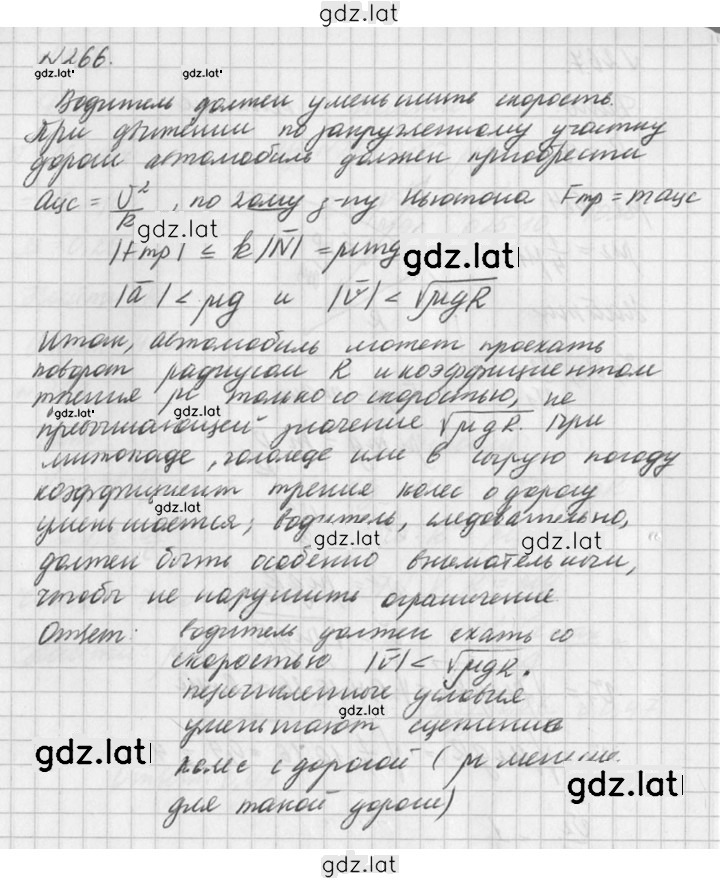 gdz.lat
№266.
gdz.lat gdz.lat
Водитель должен уменьшить скорость.
При движении по закругленному участку
дороги автомобиль должен приобрести
aцс = V²/R, по 2ому з-ну Ньютона Fтр = maцс
gdz.lat
|Fтр| ≤ k|N̄| = μmg
gdz.lat
|ā| < μg и |v̄| < √μgR
Итак, автомобиль может проехать
поворот радиусом R и коэффициентом
трения μ только со скоростью, не
gdz.lat gdz.lat
превышающей значение √μgR. При
листопаде, гололеде или в сырую погоду
коэффициент трения колес о дорогу
gdz.lat
уменьшается; водитель, следовательно,
gdz.lat gdz.lat
должен быть особенно внимательным,
чтобы не нарушить ограничение
Ответ: водитель должен ехать со
скоростью |v̄| < √μgR.
перечисленные условия
gdz.lat
уменьшают сцепление
gdz.lat
колес с дорогой (μ меньше
gdz.lat
для такой дороги)
gdz.lat